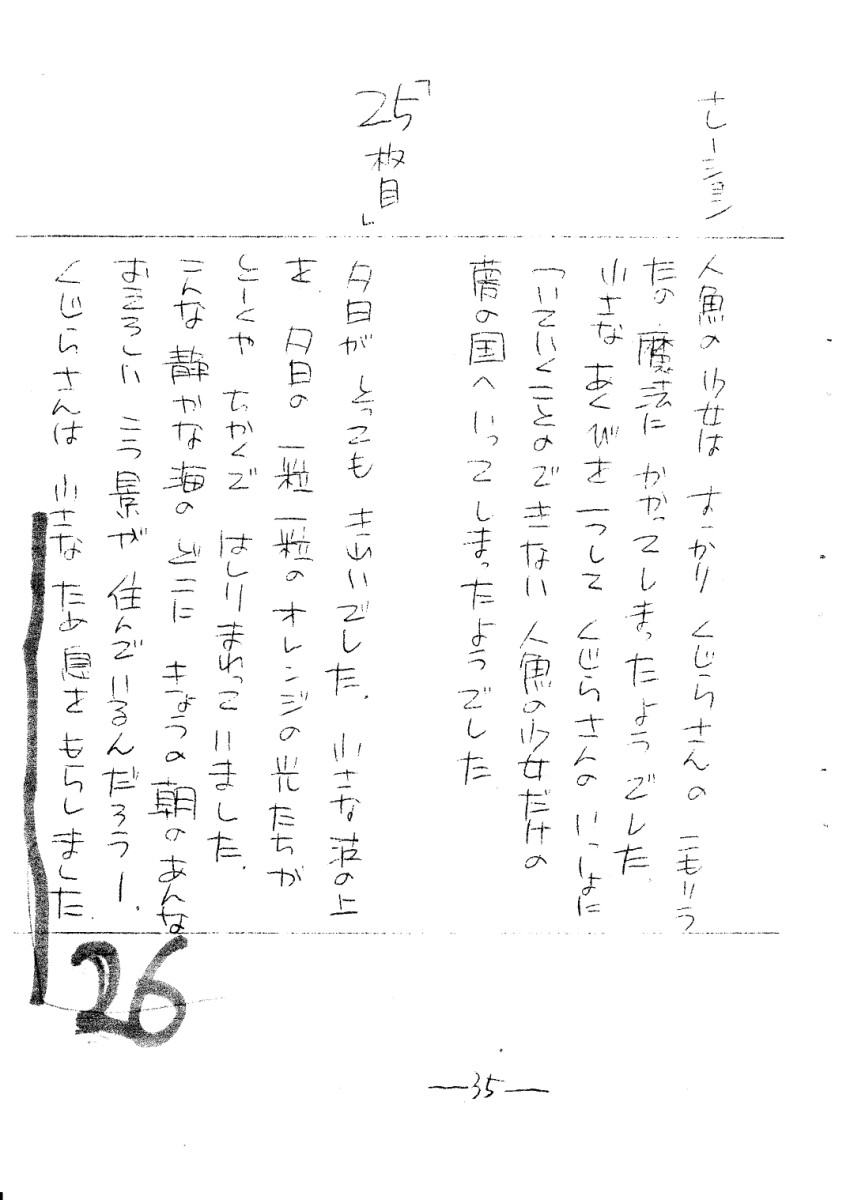 ナレーション
人魚の少女は すっかり くじらさんの こもりう
たの 魔法に かかってしまったようでした.
小さな あくびを 一つして くじらさんの いっしょに
ついていくことのできない 人魚の少女だけの
夢の国へいってしまったようでした
「25枚目」
夕日が とっても きれいでした. 小さな波の上
を. 夕日の 一粒一粒のオレンジの光たちが
とーくや ちかくで はしりまわっていました.
こんな静かな海の どこに きょうの朝のあんな
おそろしい こう景が 住んでいるんだろうー.
くじらさんは 小さな ため息を もらしました.
26
―35―